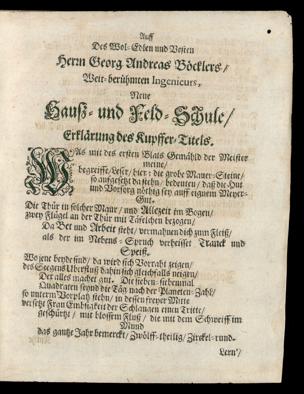 Auff
Des Wol-Edlen und Vesten
Herrn Georg Andreas Böcklers/
Weit-berühmten Ingenieurs,
Neue
Hauß- und Feld-Schule/
Erklärung des Kupffer-Titels.
WAs mit des ersten Blats Gemähld der Meister
meine/
begreiffe/Leser/hier: die grobe Mauer-Steine/
so aufgesetzt da stehn/ bedeuten/ daß die Hut
und Vorsorg nöthig sey auff eignem Meyer-
Gut.
Die Thür in solcher Maur/ und Allezeit im Bogen/
zwey Flügel an der Thür mit Täfelchen bezogen/
Da Bet und Arbeit steht/ vermahnen dich zum Fleiß/
als der im Nebens-Spruch verheisset Tranck und
Speiß.
Wo jene beyde sind/ da wird sich Vorraht zeigen/
des Seegens Uberfluß dahin sich gleichfalls neigen/
Der alles machet gut. Die sieben-siebenmal
Quadraten seynd die Täg nach der Planeten-Zahl/
so unterm Vorplatz stehn/ in dessen freyer Mitte
versetzt Frau Emsigkeit der Schlangen einen Tritte/
geschürtzt/ mit blossem Fuß/ die mit dem Schweiff im
Mund
das gantze Jahr bemerckt/ Zwölff-theilig/ Zirckel-rund.
Lern'/